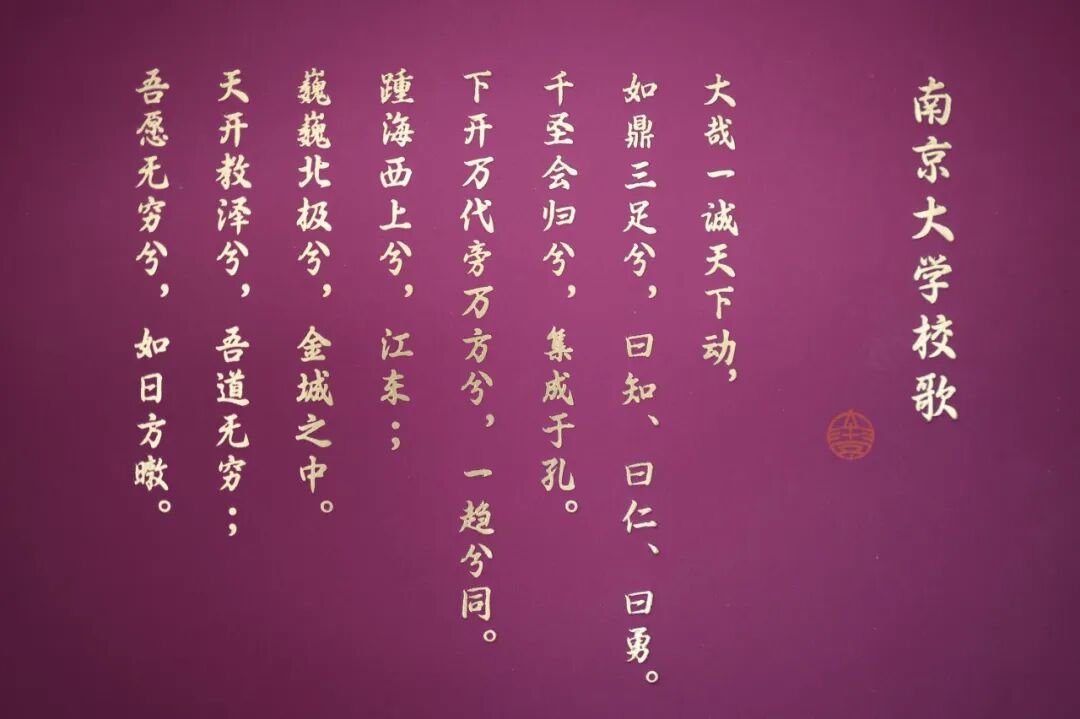 南京大学校歌
大哉一诚天下动，
如鼎三足兮，曰知、曰仁、曰勇。
千圣会归兮，集成于孔。
下开万代旁万方兮，一趋兮同。
踵海西上兮，江东；
巍巍北极兮，金城之中。
天开教泽兮，吾道无穷；
吾愿无穷兮，如日方暾。